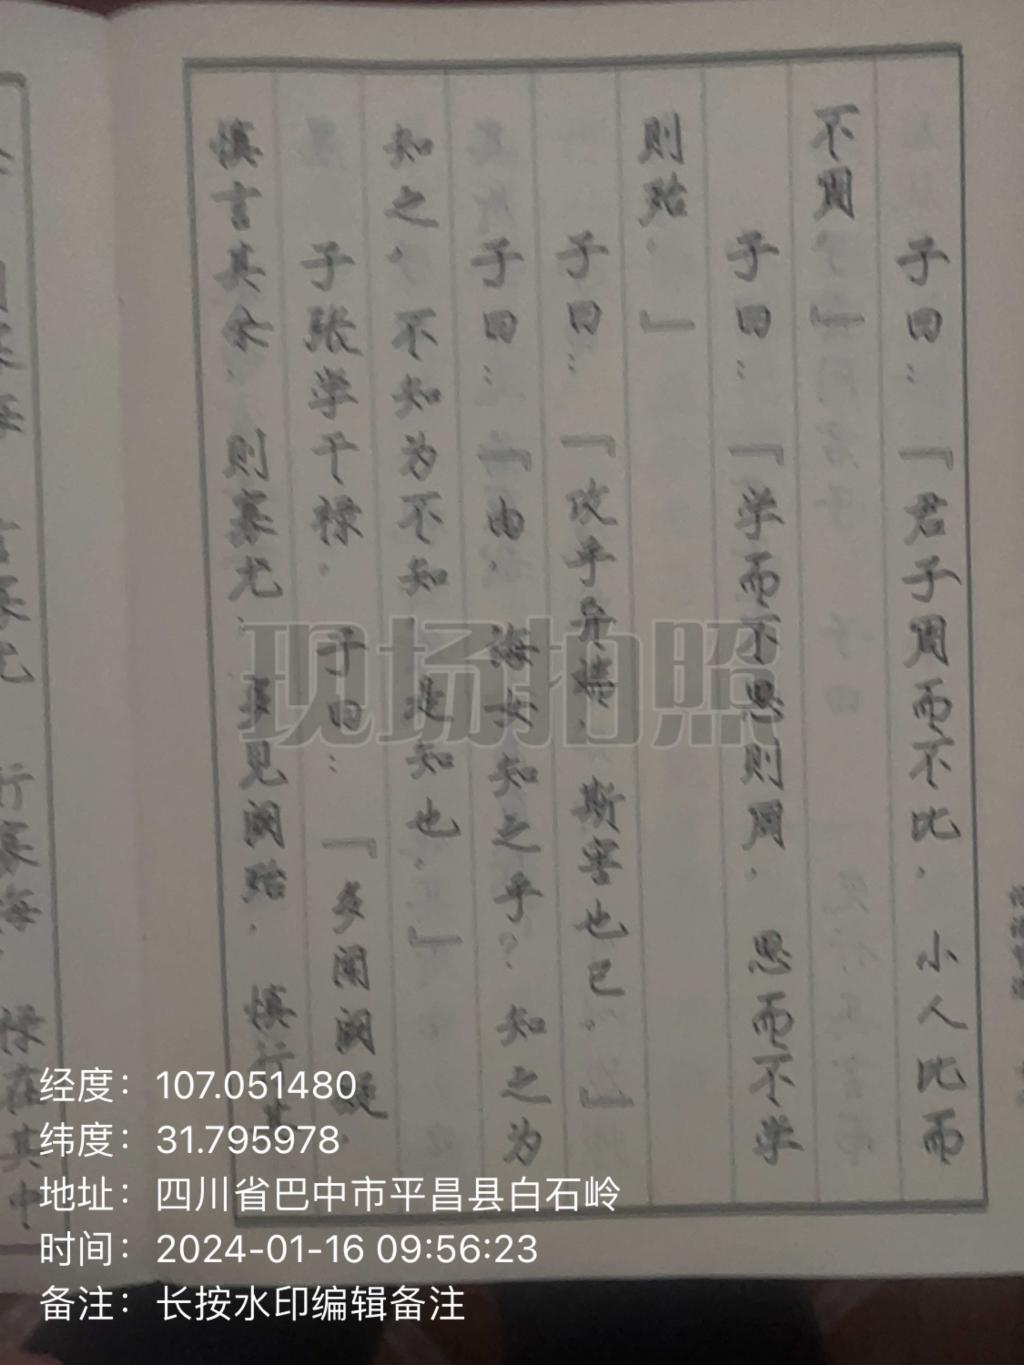 子曰：『君子周而不比，小人比而
不周。』
子曰：『学而不思则罔，思而不学
则殆。』
子曰：『攻乎异端，斯害也已。』
子曰：『由，诲女知之乎？知之为
知之，不知为不知，是知也。』
子张学干禄。子曰：『多闻阙疑，
慎言其余，则寡尤；多见阙殆，慎行其
禄在其中
现场拍照
经度：107.051480
纬度：31.795978
地址：四川省巴中市平昌县白石岭
时间：2024-01-16 09:56:23
备注：长按水印编辑备注